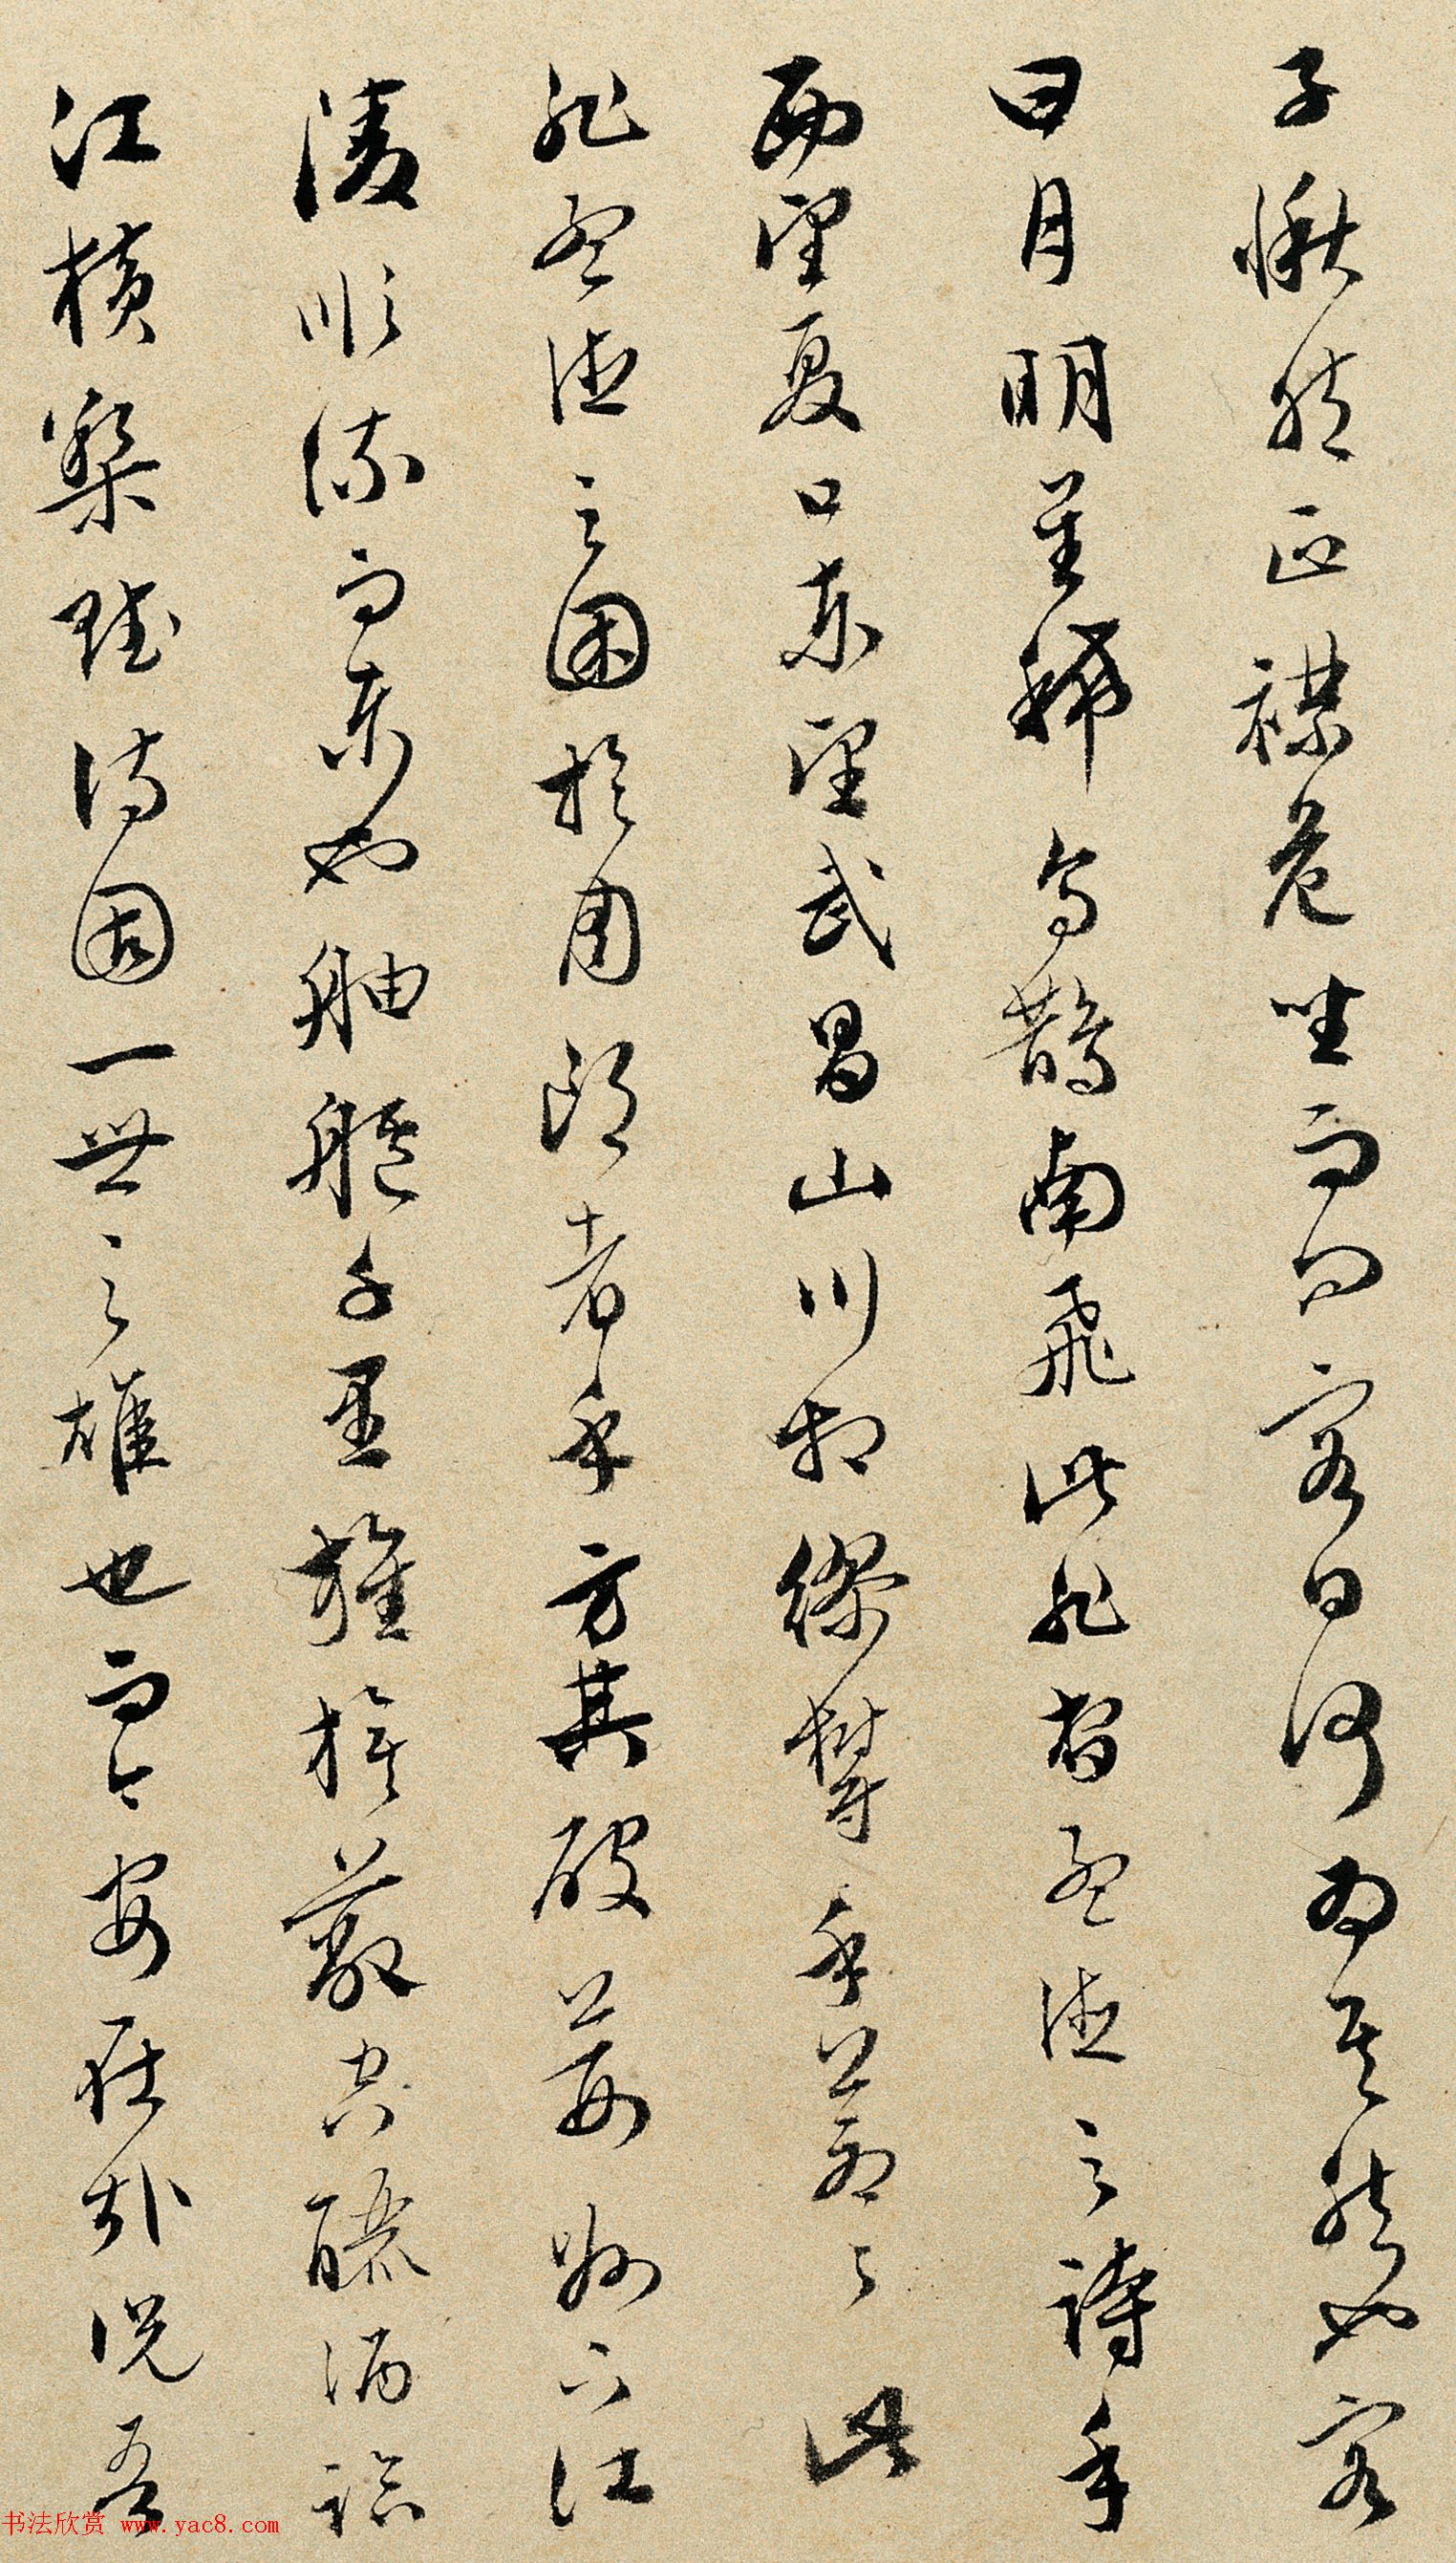 子愀然正襟危坐而問客曰何為其然也客
曰月明星稀烏鵲南飛此非曹孟德之詩乎
西望夏口東望武昌山川相繆鬱乎蒼〻此
非孟德之困於周郎者乎方其破荊州下江
陵順流而東也舳艫千里旌旗蔽空釃酒臨
江橫槊賦詩固一世之雄也而今安在哉況吾
书法欣赏 www.yac8.com